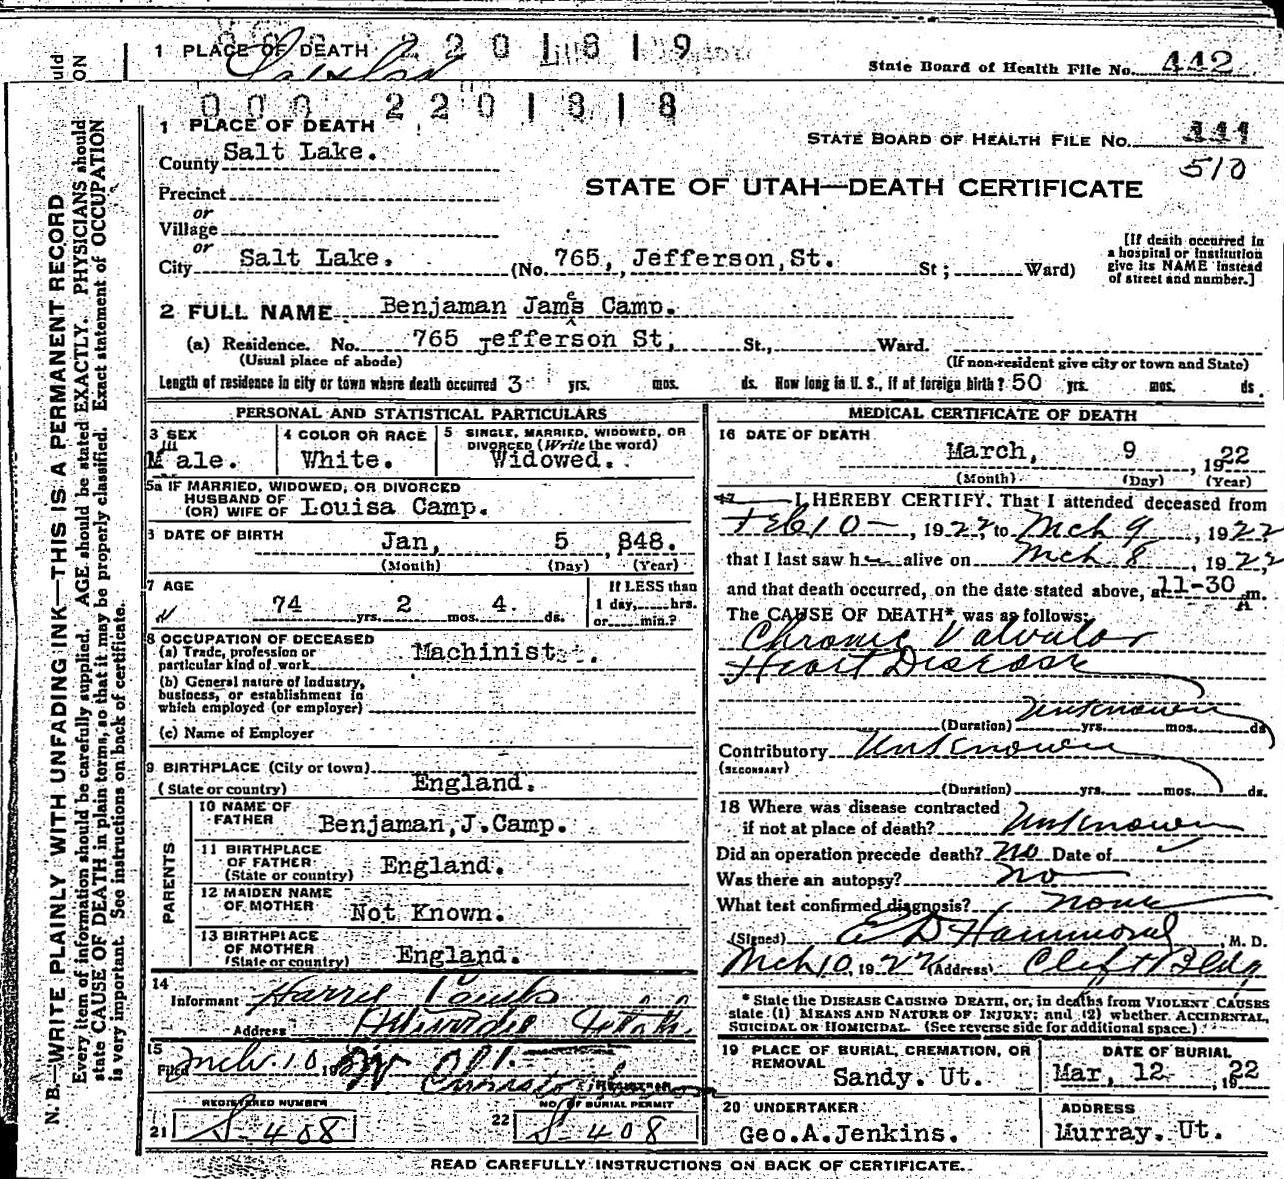 1 PLACE OF DEATH
000 2201819
State Board of Health File No. 442
000 2201818
1 PLACE OF DEATH
STATE BOARD OF HEALTH FILE NO. 441
County Salt Lake.
510
STATE OF UTAH—DEATH CERTIFICATE
Precinct
or
Village
or
City Salt Lake. (No. 765, Jefferson, St. St; Ward)
[If death occurred in
a hospital or institution
give its NAME instead
of street and number.]
2 FULL NAME Benjaman James Camp.
(a) Residence. No. 765 Jefferson St, St., Ward.
(Usual place of abode) (If non-resident give city or town and State)
Length of residence in city or town where death occurred 3 yrs. mos. ds. How long in U. S., if of foreign birth? 50 yrs. mos. ds.
PERSONAL AND STATISTICAL PARTICULARS
3 SEX
Male.
4 COLOR OR RACE
White.
5 SINGLE, MARRIED, WIDOWED, OR
DIVORCED (Write the word)
Widowed.
5a IF MARRIED, WIDOWED, OR DIVORCED
HUSBAND OF
(OR) WIFE OF Louisa Camp.
DATE OF BIRTH Jan, 5, 848.
(Month) (Day) (Year)
7 AGE
74 yrs. 2 mos. 4. ds.
If LESS than
1 day, hrs.
or min.?
8 OCCUPATION OF DECEASED
(a) Trade, profession or
particular kind of work Machinist.
(b) General nature of industry,
business, or establishment in
which employed (or employer)
(c) Name of Employer
9 BIRTHPLACE (City or town)
(State or country) England.
PARENTS
10 NAME OF
FATHER Benjaman, J. Camp.
11 BIRTHPLACE
OF FATHER
(State or country) England.
12 MAIDEN NAME
OF MOTHER Not Known.
13 BIRTHPLACE
OF MOTHER
(State or country) England.
14
Informant Harris
Address Utah
15
Filed Mch. 10 192
REGISTRAR
REGISTERED NUMBER
21 S-408
NO. OF BURIAL PERMIT
22 S-408
MEDICAL CERTIFICATE OF DEATH
16 DATE OF DEATH
March, 9, 1922
(Month) (Day) (Year)
17 I HEREBY CERTIFY. That I attended deceased from
Feb 10, 1922, to Mch 9, 1922
that I last saw h alive on Mch 8, 1922,
and that death occurred, on the date stated above, at 11-30 A m.
The CAUSE OF DEATH* was as follows:
Chronic Valvular
Heart Disease
Unknown
(Duration) yrs. mos. ds
Contributory Unknown
(SECONDARY)
(Duration) yrs. mos. ds.
18 Where was disease contracted
if not at place of death? Unknown
Did an operation precede death? No Date of
Was there an autopsy? No
What test confirmed diagnosis? None
(Signed) E D Hammond, M. D.
Mch 10, 1922 (Address) Clift Bldg
* State the DISEASE CAUSING DEATH, or, in deaths from VIOLENT CAUSES
state (1) MEANS AND NATURE OF INJURY; and (2) whether ACCIDENTAL,
SUICIDAL OR HOMICIDAL. (See reverse side for additional space.)
19 PLACE OF BURIAL, CREMATION, OR
REMOVAL Sandy. Ut.
DATE OF BURIAL
Mar, 12, 1922
20 UNDERTAKER
Geo. A. Jenkins.
ADDRESS
Murray. Ut.
READ CAREFULLY INSTRUCTIONS ON BACK OF CERTIFICATE.
N. B.—WRITE PLAINLY WITH UNFADING INK—THIS IS A PERMANENT RECORD
Every item of information should be carefully supplied. AGE should be stated EXACTLY. PHYSICIANS should
state CAUSE OF DEATH in plain terms, so that it may be properly classified. Exact statement of OCCUPATION
is very important. See instructions on back of certificate.